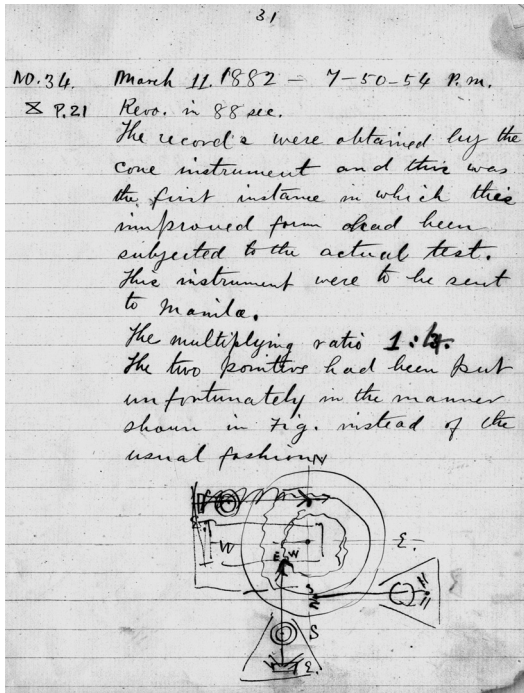 31
NO.34. March 11. 1882 – 7-50-54 P.m.
P.21 Revo. in 88 sec.
The records were obtained by the
cone instrument and this was
the first instance in which this
improved form had been
subjected to the actual test.
This instrument were to be sent
to Manila.
The multiplying ratio 1:
The two pointers had been put
unfortunately in the manner
shown in Fig. instead of the
usual fashion
N
W
E W
E.
S
N
S
E.